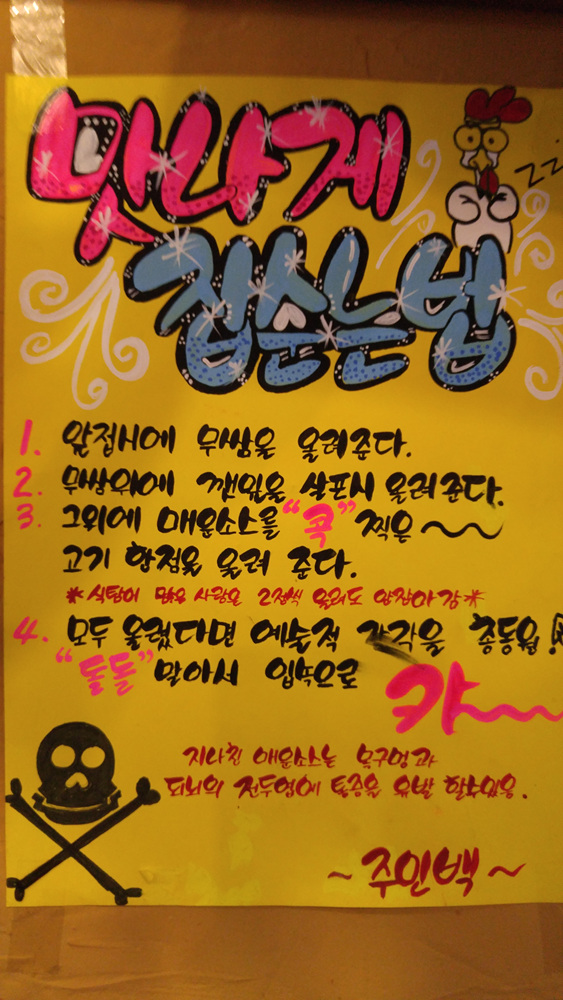 맛나게
zzi
잡숫는법
1. 앞접시에 무쌈을 올려준다.
2. 무쌈위에 깻잎을 살포시 올려준다.
3. 그위에 매운소스를 "콕" 찍은~~
고기 한점을 올려 준다.
*식탐이 많은 사람은 2점씩 올려도 안잡아감*
4. 모두 올렸다면 예술적 감각을 총동원
"돌돌" 말아서 입속으로
캬~~
지나친 매운소스는 목구멍과
뇌의 전두엽에 통증을 유발 할수있음.
~주인백~